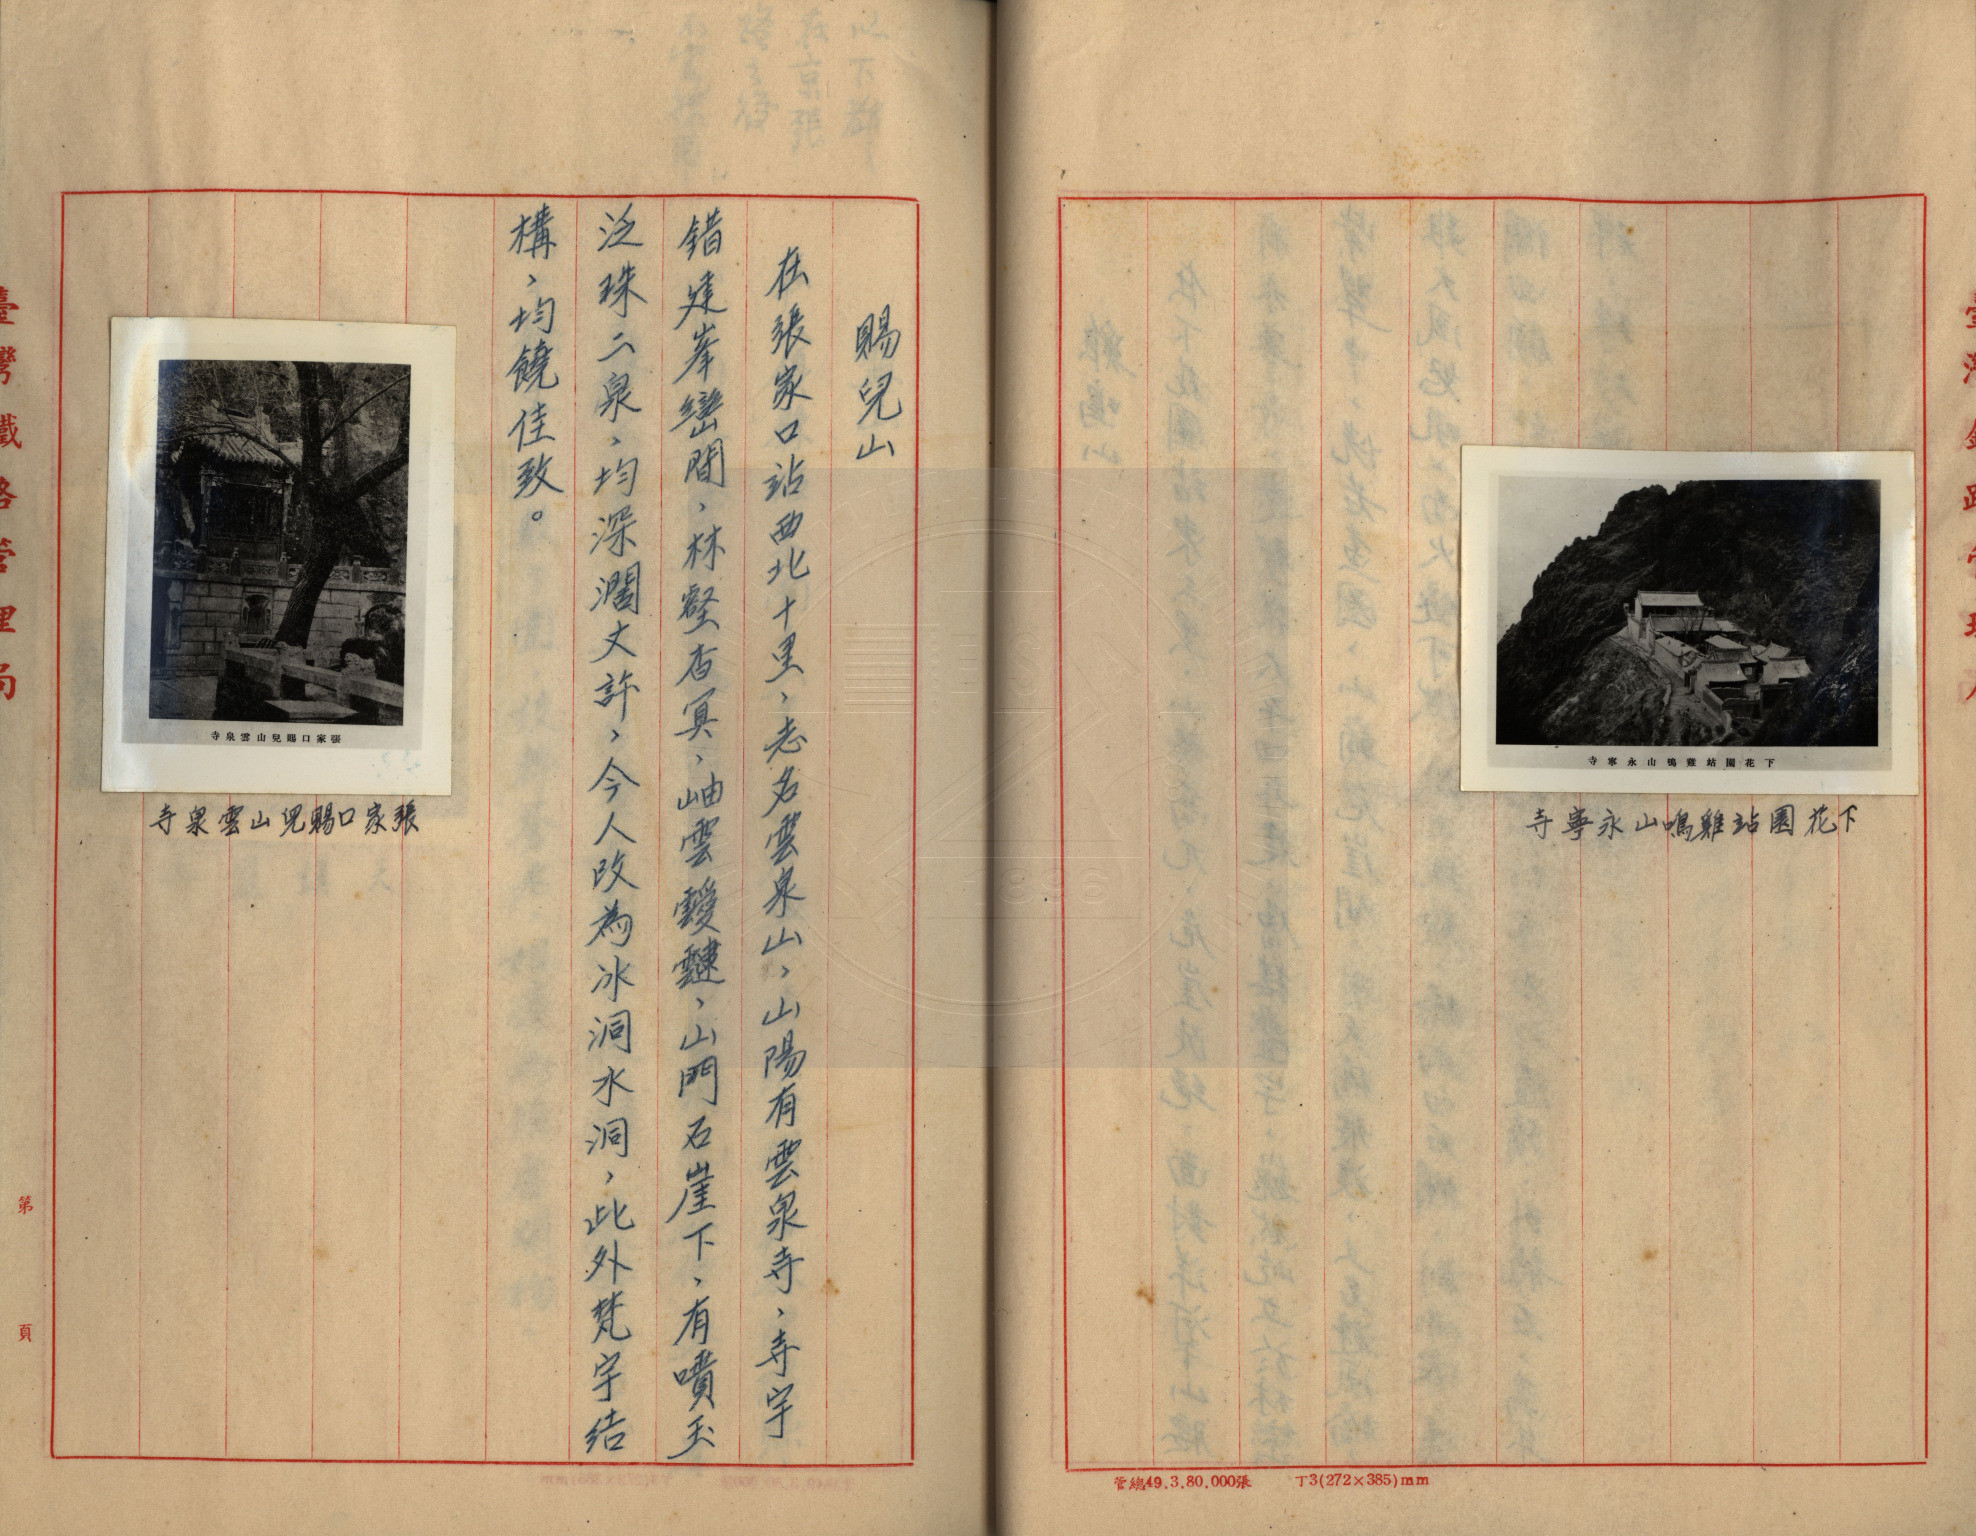 下花園站雞鳴山永寧寺
下花園站雞鳴山永寧寺
管總49.3.80,000張 丁3(272×385)mm
賜兒山
在張家口站西北十里、志名雲泉山、山陽有雲泉寺、寺宇
錯建峯巒間、林壑杳冥、岫雲靉靆、山門石崖下、有噴玉
泛珠二泉、均深濶丈許、今人改為冰洞水洞、此外梵宇結
構、均饒佳致。
張家口賜兒山雲泉寺
張家口賜兒山雲泉寺
臺灣鐵路管理局
第 頁
1896